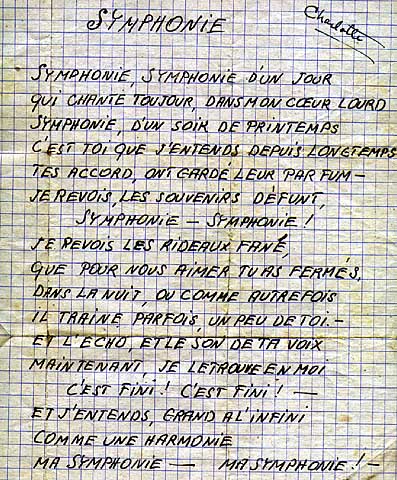 SYMPHONIE
Charlotte
SYMPHONIE, SYMPHONIE D'UN JOUR
QUI CHANTE TOUJOUR, DANS MON CŒUR LOURD
SYMPHONIE, D'UN SOIR DE PRINTEMPS
C'EST TOI QUE J'ENTENDS DEPUIS LONGTEMPS
TES ACCORD, ONT GARDÉ LEUR PARFUM —
JE REVOIS, LES SOUVENIRS DÉFUNT,
SYMPHONIE — SYMPHONIE !
JE REVOIS LES RIDEAUX FANÉ,
QUE POUR NOUS AIMER TU AS FERMÉS,
DANS LA NUIT, OU COMME AUTREFOIS
IL TRAINE, PARFOIS, UN PEU DE TOI. —
ET L'ECHO, ET LE SON DE TA VOIX
MAINTENANT, JE LE TROUVE EN MOI
C'EST FINI ! C'EST FINI ! —
ET J'ENTENDS, GRAND A L'INFINI
COMME UNE HARMONIE
MA SYMPHONIE — MA SYMPHONIE ! —